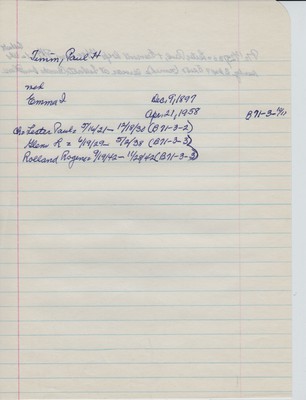 Timm, Paul H
ned
Emma I Dec, 9, 1897
Apr. 21, 1958 B71-3-
Ch= Lester Paul= 7/14/21- 12/18/30 (B71-3-2)
Glenn R = 6/19/29- 5/2/38 (B71-3-3)
Rolland Rogene= 9/19/42- 11/28/42 (B71-3-3)